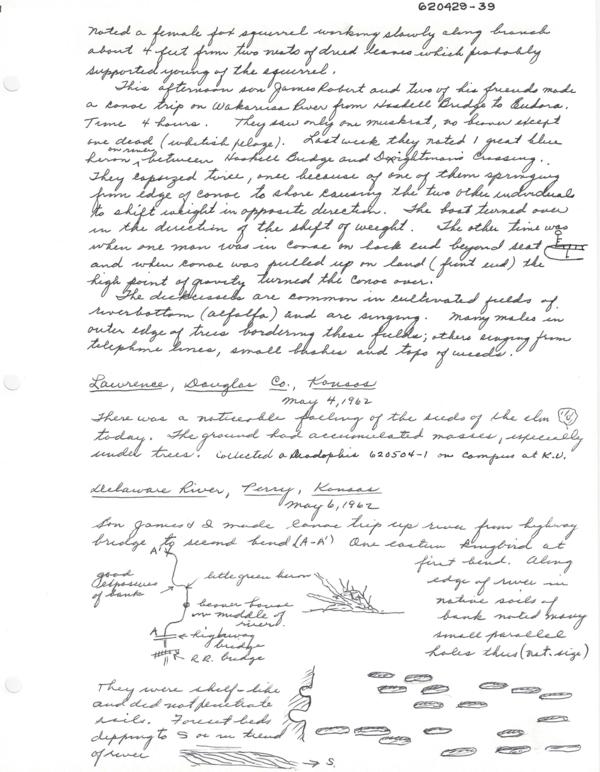 620429-39
noted a female fox squirrel working slowly along branch
about 4 feet from two nests of dried leaves which probably
supported young of the squirrel.
This afternoon son James Robert and two of his friends made
a canoe trip on Wakarusa River from Haskell Bridge to Eudora.
Time 4 hours. They saw only one muskrat, no beaver except
one dead (whitish pelage). Last week they noted 1 great blue
heron on river between Haskell Bridge and Dwightman's Crossing.
They capsized twice, once because of one of them springing
from edge of canoe to shore causing the two other individuals
to shift weight in opposite direction. The boat turned over
in the direction of the shift of weight. The other time was
when one man was in canoe on back end beyond seat
and when canoe was pulled up on land (front end) the
high point of gravity turned the canoe over.
The dickcissels are common in cultivated fields of
riverbottom (alfalfa) and are singing. Many males in
outer edge of trees bordering these fields; others singing from
telephone lines, small bushes and tops of weeds.
Lawrence, Douglas Co., Kansas
May 4, 1962
There was a noticeable falling of the seeds of the elm
today. The ground had accumulated masses, especially
under trees. Collected a Diadophis 620504-1 on campus at K.U.
Delaware River, Perry, Kansas
May 6, 1962
Son James & I made canoe trip up river from highway
bridge to second bend (A-A') One eastern kingbird at
first bend. Along
edge of river in
native soils of
bank noted many
small parallel
holes thus (nat. size)
A'
good exposures
of bank
little green heron
beaver house
in middle of
river
A
highway
bridge
R.R. bridge
They were shelf-like
and did not penetrate
soils. Foreset beds
dipping to S or in trend
of river
→ S.